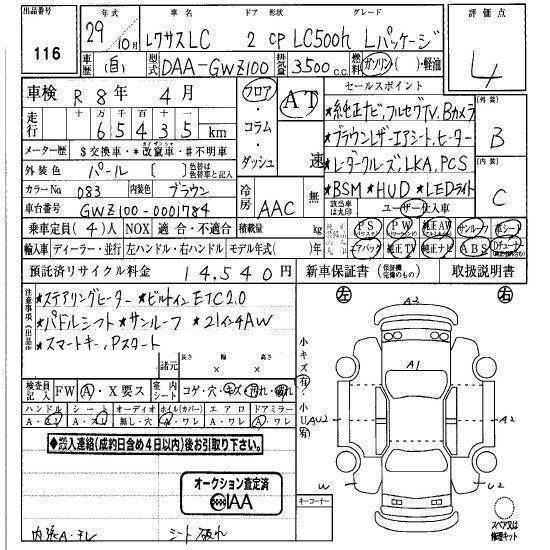 出品番号 年式 車名 ドア 形状 グレード 評価点
116 29年 10月 レクサスLC 2 CP LC500h Lパッケージ 4
車歴 (自) 型式 DAA-GWZ100 排気量 3500c.c. 燃料 ガソリン( )・軽油
車検 R8年 4月 フロア・コラム・ダッシュ AT 速 セールスポイント
走行 十万 万 千 百 十 一
65435km
★純正ナビ,フルセグTV,Bカメラ 外装 B
メーター歴 $交換車・*改竄車・#不明車
★ブラウンレザーエアシート,ヒーター
外装色 パール [ ] 色替は色替車と記入
★レーダークルーズ,LKA,PCS 内装 C
カラーNo 083 内装色 ブラウン 冷房 AAC 無
★BSM ★HUD ★LEDライト
車台番号 GWZ100-0001784 該当車は丸印 ユーザー仕入車
乗車定員(4)人 NOX 適合・不適合 積載量 kg PS PW 純正AW サンルーフ 革シート
輸入車 ディーラー・並行 左ハンドル・右ハンドル モデル年式( )年 エアバック 純正TV 純正ナビ ABS
預託済リサイクル料金 14,540円 新車保証書 取扱説明書
注意事項(出品店
★ステアリングヒーター ★ビルトインETC2.0
★パドルシフト ★サンルーフ ★21インチAW
★スマートキー,Pスタート
諸元 長さ × 幅 × 高さ
左 右
小キズ有・小U有
A2
A1
検査員記入 FW A・X要ス 室内シート コゲ・穴・キズ・汚れ・破れ
ハンドル シート オーディオ ホイル(カバー) エアロ ドアミラー
A・スレ A・スレ 無し・穴 A・ワレ A・ワレ A・ワレ
AU2 A2
◆搬入連絡(成約日含め4日以内)後お引取り下さい。◆
オークション査定済
IAA
キーコーナー
W U2
スペア又は修理キット
内張A・テレ シート破れ